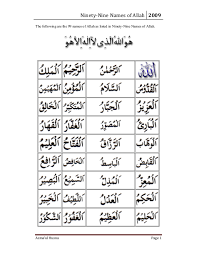 Ninety-Nine Names of Allah 2009
The following are the 99 names of Allah as listed in Ninety-Nine Names of Allah
هُوَ اللهُ الَّذِي لَا إِلٰهَ إِلَّا هُوَ
اللهُ الرَّحْمٰنُ الرَّحِيْمُ الْمَلِكُ
الْقُدُّوْسُ السَّلَامُ الْمُؤْمِنُ الْمُهَيْمِنُ
الْعَزِيْزُ الْجَبَّارُ الْمُتَكَبِّرُ الْخَالِقُ
الْبَارِئُ الْمُصَوِّرُ الْغَفَّارُ الْقَهَّارُ
الْوَهَّابُ الرَّزَّاقُ الْفَتَّاحُ الْعَلِيْمُ
الْقَابِضُ الْبَاسِطُ الْخَافِضُ الرَّافِعُ
الْمُعِزُّ الْمُذِلُّ السَّمِيْعُ الْبَصِيْرُ
الْحَكَمُ الْعَدْلُ اللَّطِيْفُ الْخَبِيْرُ
الْحَلِيْمُ الْعَظِيْمُ الْغَفُوْرُ الشَّكُوْرُ
Asma'ul Husna Page 1